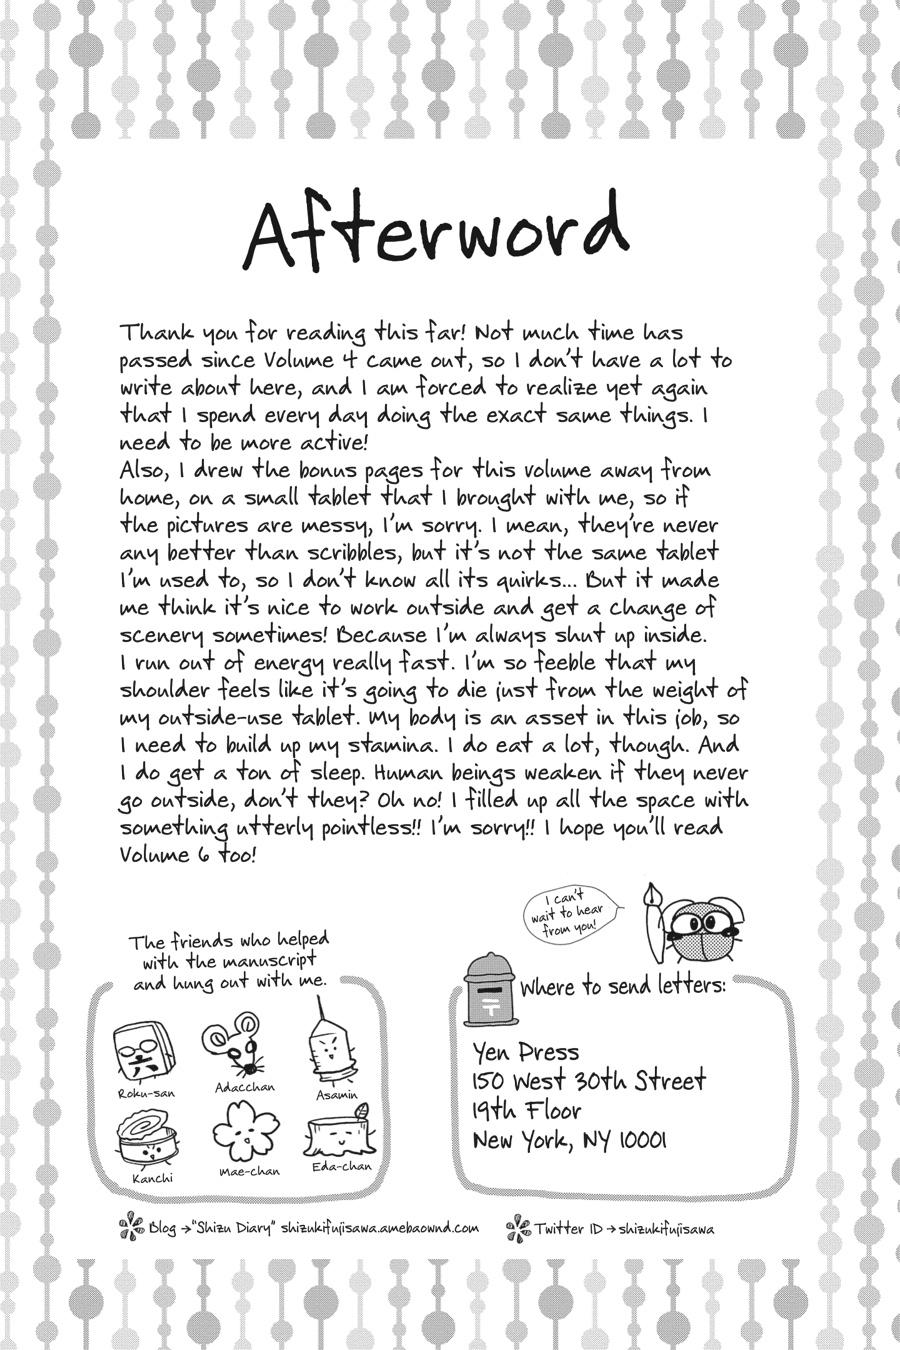 Afterword
Thank you for reading this far! Not much time has
passed since Volume 4 came out, so I don't have a lot to
write about here, and I am forced to realize yet again
that I spend every day doing the exact same things. I
need to be more active!
Also, I drew the bonus pages for this volume away from
home, on a small tablet that I brought with me, so if
the pictures are messy, I'm sorry. I mean, they're never
any better than scribbles, but it's not the same tablet
I'm used to, so I don't know all its quirks... But it made
me think it's nice to work outside and get a change of
scenery sometimes! Because I'm always shut up inside.
I run out of energy really fast. I'm so feeble that my
shoulder feels like it's going to die just from the weight of
my outside-use tablet. My body is an asset in this job, so
I need to build up my stamina. I do eat a lot, though. And
I do get a ton of sleep. Human beings weaken if they never
go outside, don't they? Oh no! I filled up all the space with
something utterly pointless!! I'm sorry!! I hope you'll read
Volume 6 too!
I can't
wait to hear
from you!
The friends who helped
with the manuscript
and hung out with me.
六
Roku-san
Adacchan
Asamin
Kanchi
Mae-chan
Eda-chan
〒
Where to send letters:
Yen Press
150 West 30th Street
19th Floor
New York, NY 10001
Blog →"Shizu Diary" shizukifujisawa.amebaownd.com
Twitter ID → shizukifujisawa